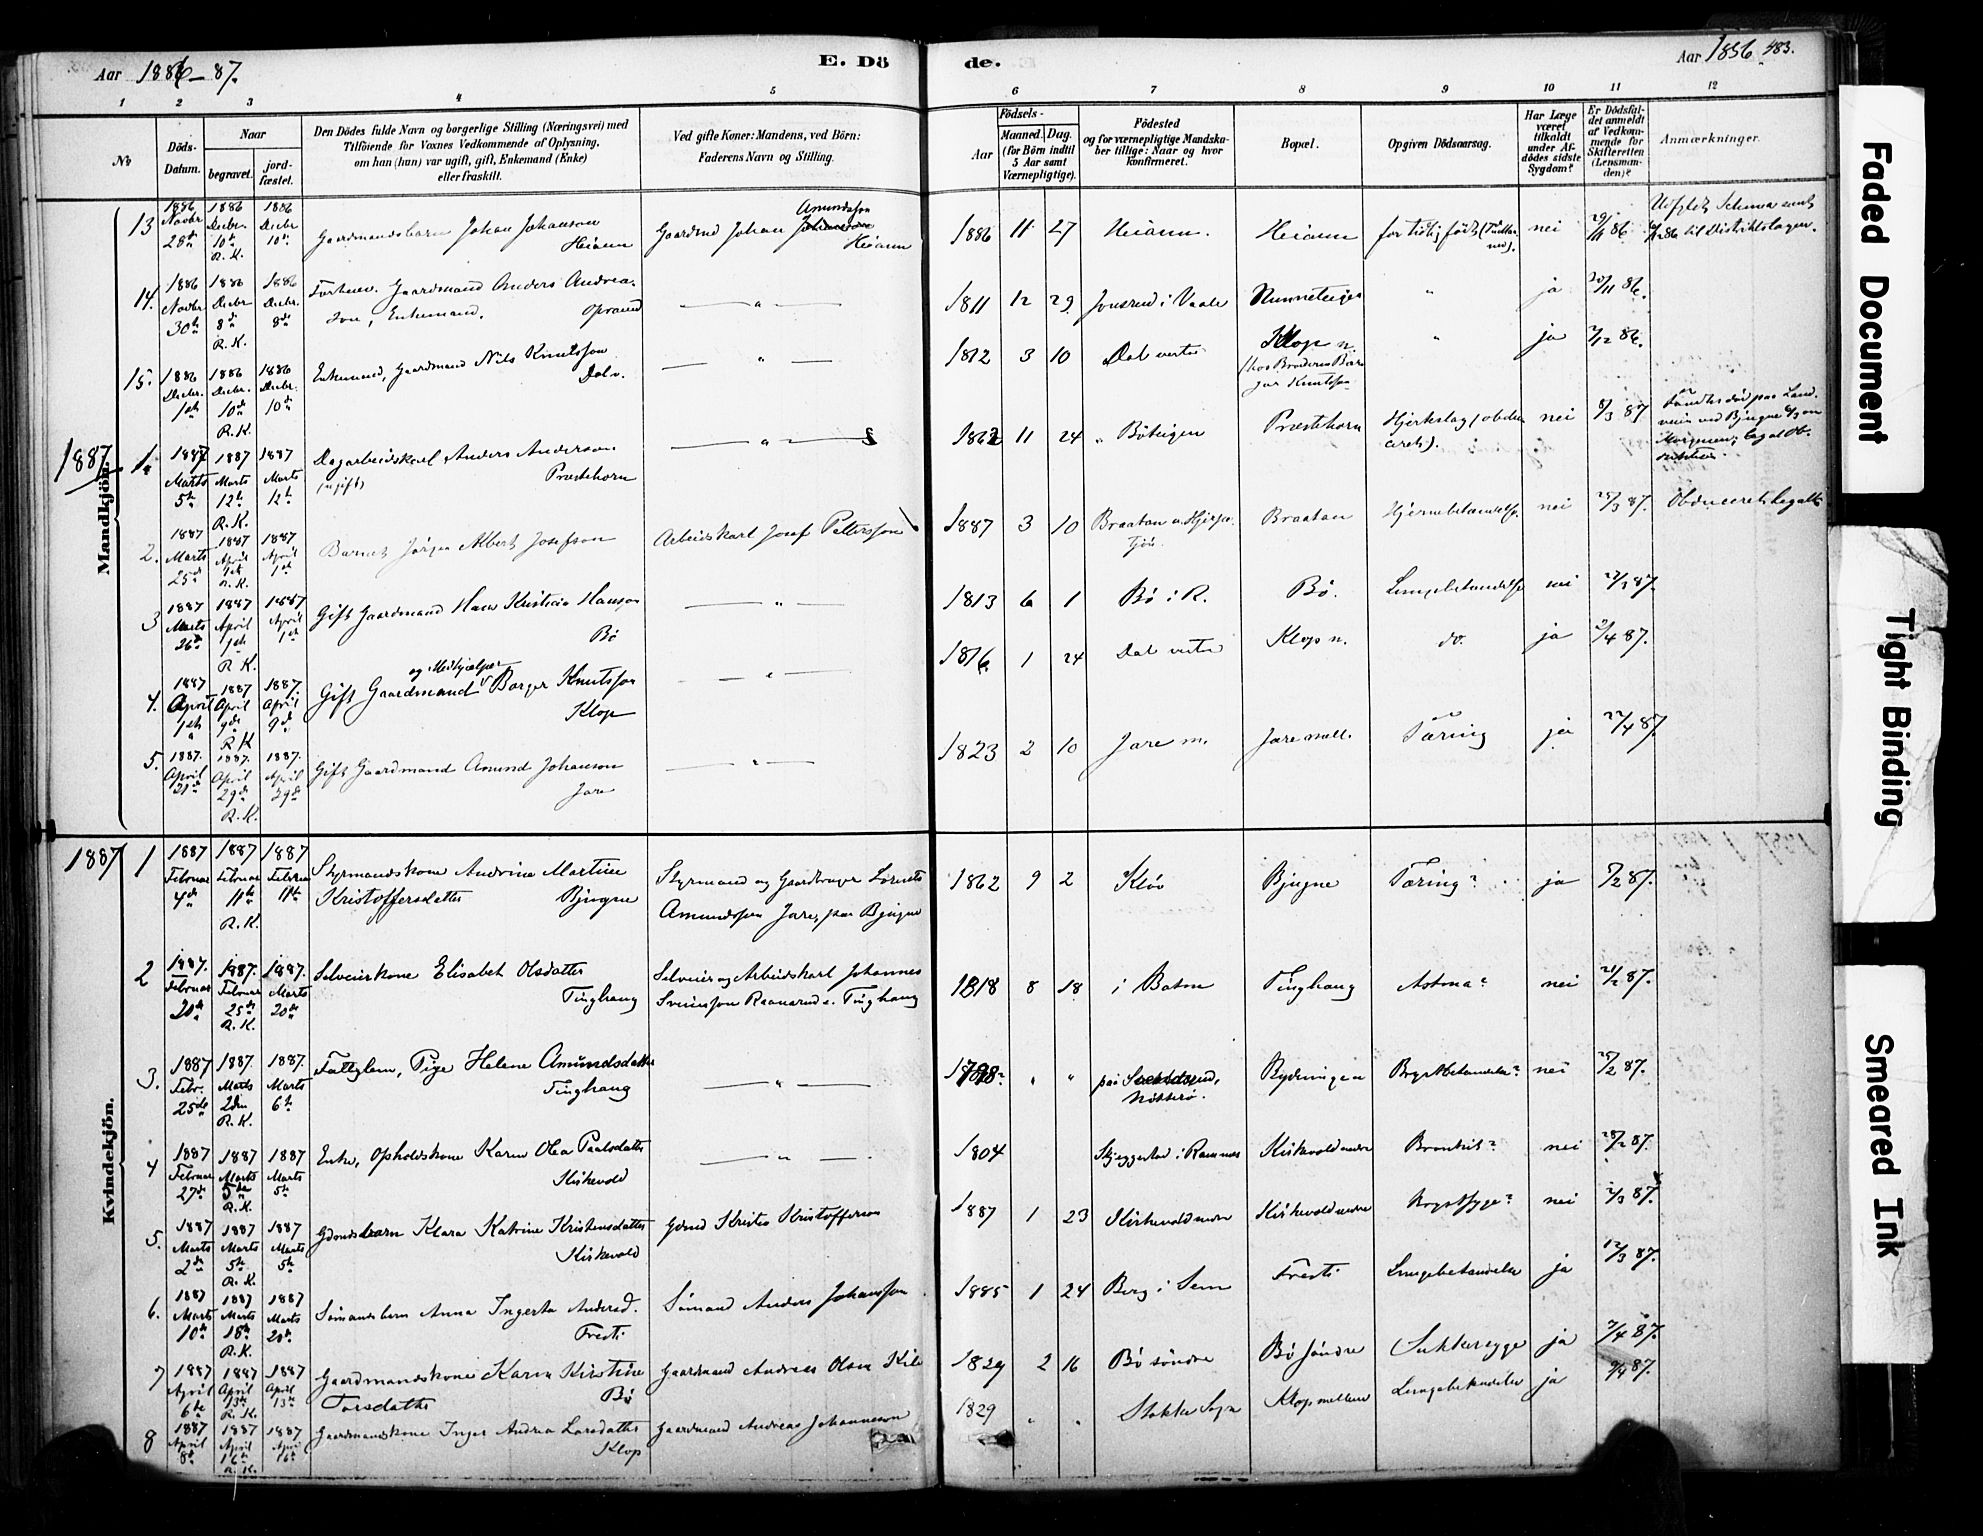 Aar 1886-87.
E. Dö
de.
Aar 1886. 483.
1 2 3 4 5 6 7 8 9 10 11 12
No
Döds-Datum.
Naar
begravet.
jordfæstet.
Den Dödes fulde Navn og borgerlige Stilling (Næringsvei) med
Tilföiende for Voxnes Vedkommende af Oplysning,
om han (hun) var ugift, gift, Enkemand (Enke)
eller fraskilt.
Ved gifte Koner: Mandens, ved Börn:
Faderens Navn og Stilling.
Födsels-
Aar
Maaned. Dag.
(for Börn indtil
5 Aar samt
Værnepligtige).
Födested
og for værnepligtige Mandska-
ber tillige: Naar og hvor
konfirmeret.
Bopæl.
Opgiven Dödsaarsag.
Har Læge
været
tilkaldt
under Af-
dödes sidste
Sygdom?
Er Dödsfal-
det anmeldt
af Vedkom-
mende for
Skifteretten
(Lensman-
den)?
Anmærkninger.
Mandkjön.
13 1886 Novbr 28de 1886 Decbr. 10de R. K. 1886 Decbr 10de Gaardmandsbarn Johan Johanson Heiann Gaardmd Johan Amundsson Heiann 1886 11 27 Heiann. Heiann for tidlig född nei 29/11 86
14. 1886 Novbr 30te 1886 Decbr 8de R. K. 1886 Decbr. 8de Forhenv. Gaardmand Anders Andrea-
son, Enkemand. — " — 1811 12 29. i Vaale " ja 30/11 86.
15. 1886 Decbr. 1ste 1886 Decbr. 10de R. K. 1886 Decbr. 10de Enkemand, Gaardmand Nils Knutsson Dal v. — " — 1812 3 10 Dal vestre Klop n. (hos Broderen Bor-
ger Knutsson " ja 2/12 86.
1887
1. 1887 Marts 5te 1887 Marts 12te R. K. 1887 Marts 12te Dagarbeidskarl Anders Anderson (ugift) Præstehorn — " — 1862 11 24 Böteigen Præstehorn Hjerteslag (obdu-
ceret). nei 8/3 87 Fandtes död paa Land-
veien ved Bjugne
2. 1887 Marts 25de 1887 April 1ste R. K. 1887 April 1ste Barnet Jörgen Albert Josefson Arbeidskarl Josef Pettersson 1887 3 10 Braatan Braatan Hjernebetændelse nei 25/3 87.
3 1887 Marts 26de 1887 April 1ste R. K. 1887 April 1ste Gift Gaardmand Hans Kristian Hanson Bö — " — 1813 6 1 Bö i R. Bö. Lungebetændelse nei 27/3 87.
4. 1887 April 1ste 1887 April 9de R. K. 1887. April 9de Gift Gaardmand og Medhjælper Borger Knutsson Klop — " — 1816 1 24 Dal vestre Klop n. do. ja 2/4 87.
5. 1887. April 21de 1887. April 29de R. K. 1887. April 29de Gift Gaardmand Amund Johanson Jare — " — 1823 2 10 Jare m. Jare mell. Tæring ja 22/4 87.
Kvindekjön.
1887
1 1887 Februar 4de 1887 Februar 11te R. K. 1887 Februar 11te Styrmandskone Andrine Martine
Kristoffersdatter Bjugne Styrmand og Gaardbruger Lorents
Amundssen Jare, paa Bjugne 1862 9 2 Klöv Bjugne Tæring? ja 7/2 87.
2 1887. Februar 20de 1887. Februar 25de R. K. 1887. Marts 20de Selveierkone Elisabet Olsdatter Tinghaug Selveier og Arbeidskarl Johannes
Sveinsson Raanerud v. Tinghaug 1818 8 18 i Botne Tinghaug Astma? nei 21/2 87.
3. 1887 Febr. 25de 1887. Marts 2den R. K. 1887. Marts 6te Fattiglem, Pige Helene Amundsdatter Tinghaug — " — 1798? " " Rydningen Brystbetændelse? nei 25/2 87.
4 1887 Februar 27de 1887 Marts 5te R. K. 1887 Marts 5te Enke, Opholdskone Karen Olea Paalsdatter Kirkevold — " — 1804 Skjeggestad i Ramnes Kirkevold nedre Bronkit? nei 28/2 87.
5. 1887 Marts 2de 1887 Marts 5te R. K. 1887 Marts 5te Gdmdsbarn Klara Katrine Kristensdatter Kirkevold Gdmd Kristen Kristofferson 1887 1 23 Kirkevold nedre Kirkevold nedre Brystsyge? nei 2/3 87.
6. 1887 Marts 10de 1887 Marts 18de R. K. 1887 Marts 20de Sömandsbarn Anna Ingerta Andersd. Fresti Sömand Anders Johansson 1885 1 24 Berg i Sem Fresti Lungebetændelse ja 12/3 87.
7 1887 April 6te 1887 April 13de R. K. 1887 April 13de Gaardmandskone Karen Kirstine
Torsdatter Bö Gaardmand Andreas Olsen Kile 1829 2 16 Bö söndre Bö söndre Sukkersyge ja 7/4 87.
8 1887 April 8de 1887 April 16de R. K. 1887 April 16de Gaardmandskone Inger Andrea Larsdatter Klop Gaardmand Andreas Johanneson 1829 " " Stokke Sogn Klop mellem Lungebetændelse ja 9/4 87.
Faded Document
Tight Binding
Smeared Ink